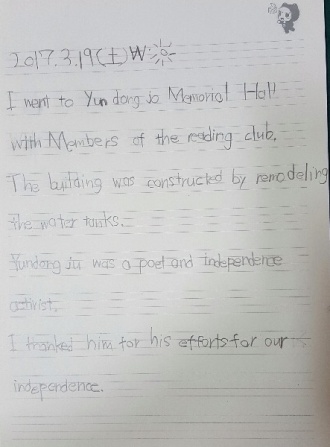 2017.3.19(土)W:☼
I went to Yun dong Jo Memorial Hall
with Members of the reading club.
The building was constructed by remodeling
the water tanks.
Yundong Ju was a poet and independence
activist.
I thanked him for his efforts for our
independence.